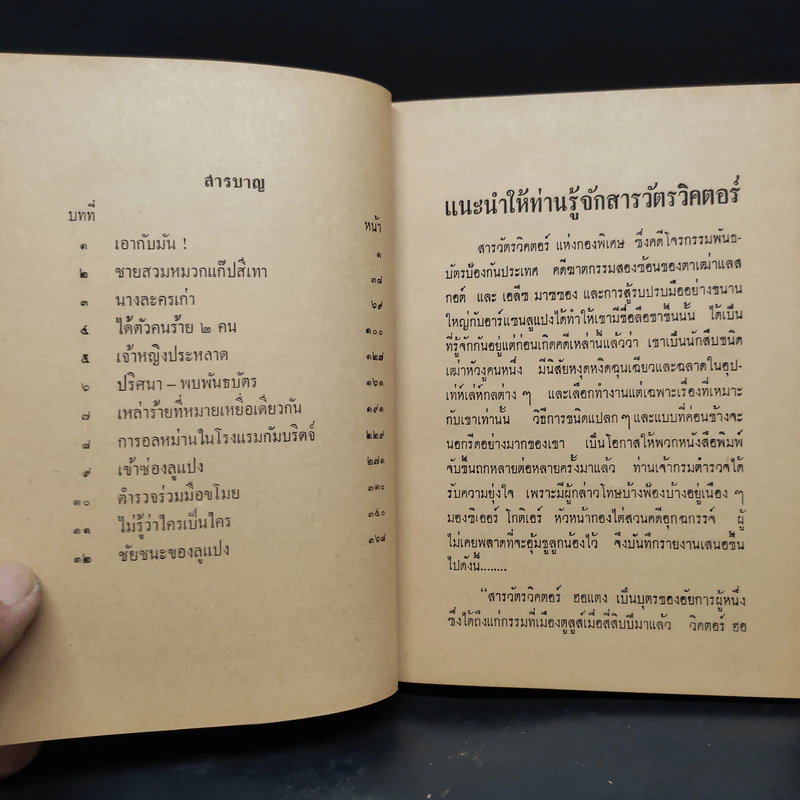 สารบาญ
บทที่ หน้า
๑ เอากับมัน ! ๑
๒ ชายสวมหมวกแก๊ปสีเทา ๓๘
๓ นางละครเก่า ๖๙
๔ ได้ตัวคนร้าย ๒ คน ๑๐๐
๕ เจ้าหญิงประหลาด ๑๒๗
๖ ปริศนา – พบพันธบัตร ๑๖๑
๗ เหล่าร้ายที่หมายเหยื่อเดียวกัน ๑๙๑
๘ การอลหม่านในโรงแรมกัมบริดจ์ ๒๒๙
๙ เข้าซ่องลูแปง ๒๗๑
๑๐ ตำรวจร่วมมือขโมย ๓๑๐
๑๑ ไม่รู้ว่าใครเป็นใคร ๓๔๐
๑๒ ชัยชนะของลูแปง ๓๖๘
แนะนำให้ท่านรู้จักสารวัตรวิคตอร์
สารวัตรวิคตอร์ แห่งกองพิเศษ ซึ่งคดีโจรกรรมพันธ-
บัตรป้องกันประเทศ คดีฆาตกรรมสองซ้อนของตาเฒ่าแลส
กอต์ และ เอลีซ มาซซอง และการสู้รบปรบมืออย่างขนาน
ใหญ่กับอาร์แซนลูแปงได้ทำให้เขามีชื่อลือชาขึ้นนั้น ได้เป็น
ที่รู้จักกันอยู่แต่ก่อนเกิดคดีเหล่านี้แล้วว่า เขาเป็นนักสืบชนิด
เฒ่าหัวงูคนหนึ่ง มีนิสัยหงุดหงิดฉุนเฉียวและฉลาดในอุป-
เท่ห์เล่ห์กลต่าง ๆ และเลือกทำงานแต่เฉพาะเรื่องที่เหมาะ
กับเขาเท่านั้น วิธีการชนิดแปลก ๆ และแบบที่ค่อนข้างจะ
นอกรีดอย่างมากของเขา เป็นโอกาสให้พวกหนังสือพิมพ์
จับขึ้นถกหลายต่อหลายครั้งมาแล้ว ท่านเจ้ากรมตำรวจได้
รับความยุ่งใจ เพราะมีผู้กล่าวโทษบ้างฟ้องบ้างอยู่เนือง ๆ
มองซิเออร์ โกติเอร์ หัวหน้ากองไต่สวนคดีอุกฉกรรจ์ ผู้
ไม่เคยพลาดที่จะอุ้มชูลูกน้องไว้ จึงบันทึกรายงานเสนอขึ้น
ไปดังนี้........
“สารวัตรวิคตอร์ ฮอแตง เป็นบุตรของอัยการผู้หนึ่ง
ซึ่งได้ถึงแก่กรรมที่เมืองตูลูส์เมื่อสี่สิบปีมาแล้ว วิคตอร์ ฮอ